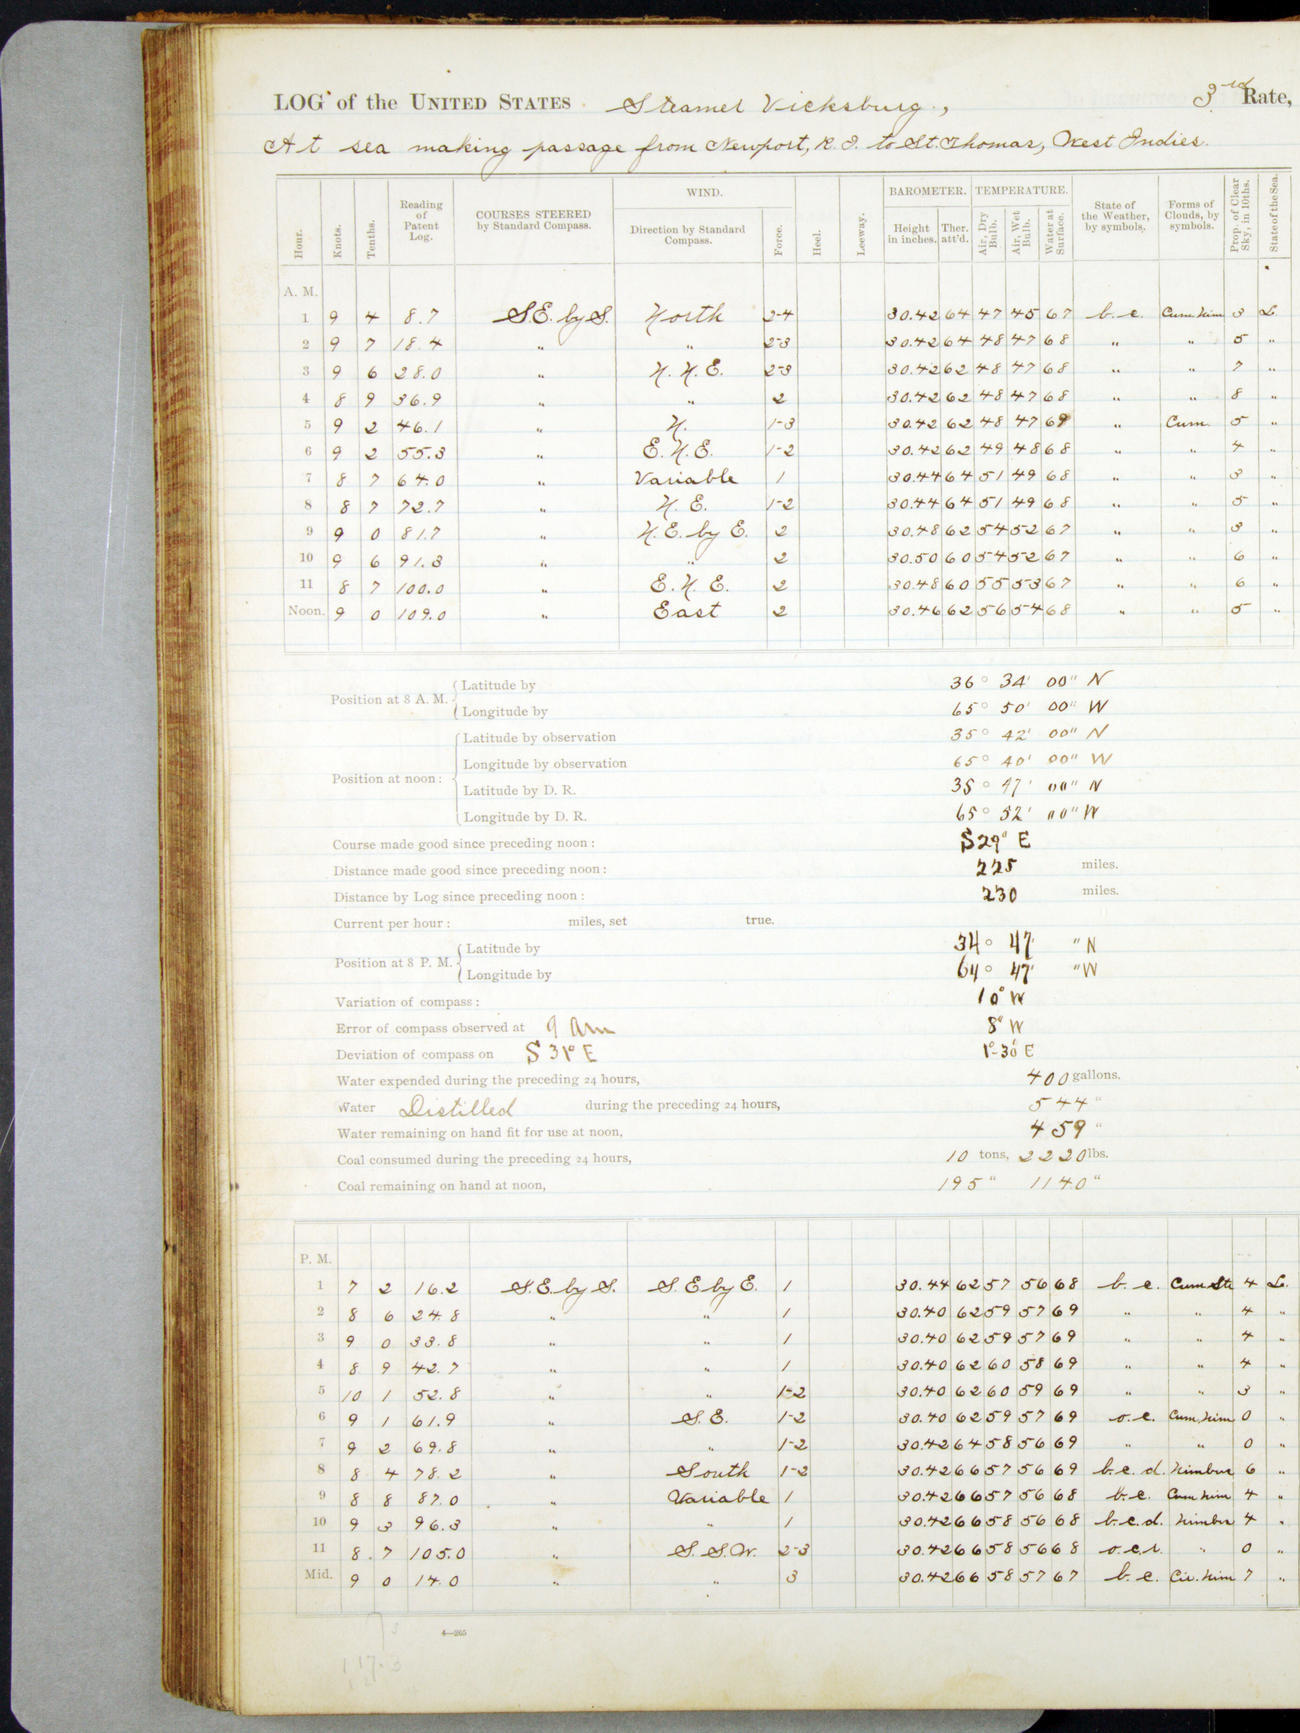 LOG of the UNITED STATES Steamer Vicksburg, 3rd Rate,
At sea making passage from Newport, R. I. to St. Thomas, West Indies.
Hour. Knots. Tenths. Reading of Patent Log. COURSES STEERED by Standard Compass. WIND. Direction by Standard Compass. Force. Heel. Leeway. BAROMETER. Height in inches. Ther. att'd. TEMPERATURE. Air, Dry Bulb. Air, Wet Bulb. Water at Surface. State of the Weather, by symbols. Forms of Clouds, by symbols. Prop. of Clear Sky, in 10ths. State of the Sea.
A. M.
1 9 4 8.7 S.E. by S. North 2-4 30.42 64 47 45 67 b. c. Cum. Nim 3 L.
2 9 7 18.4 " " 2-3 30.42 64 48 47 68 " " 5 "
3 9 6 28.0 " N. N. E. 2-3 30.42 62 48 47 68 " " 7 "
4 8 9 36.9 " " 2 30.42 62 48 47 68 " " 8 "
5 9 2 46.1 " N. 1-3 30.42 62 48 47 69 " Cum. 5 "
6 9 2 55.3 " E. N. E. 1-2 30.42 62 49 48 68 " " 4 "
7 8 7 64.0 " Variable 1 30.44 64 51 49 68 " " 3 "
8 8 7 72.7 " N. E. 1-2 30.44 64 51 49 68 " " 5 "
9 9 0 81.7 " N. E. by E. 2 30.48 62 54 52 67 " " 3 "
10 9 6 91.3 " " 2 30.50 60 54 52 67 " " 6 "
11 8 7 100.0 " E. N. E. 2 30.48 60 55 53 67 " " 6 "
Noon. 9 0 109.0 " East 2 30.46 62 56 54 68 " " 5 "
Position at 8 A. M. Latitude by 36° 34' 00" N
Longitude by 65° 50' 00" W
Position at noon: Latitude by observation 35° 42' 00" N
Longitude by observation 65° 40' 00" W
Latitude by D. R. 35° 47' 00" N
Longitude by D. R. 65° 52' 00" W
Course made good since preceding noon: S 29° E
Distance made good since preceding noon: 225 miles.
Distance by Log since preceding noon: 230 miles.
Current per hour: miles, set true.
Position at 8 P. M. Latitude by 34° 47' " N
Longitude by 64° 47' " W
Variation of compass: 10° W
Error of compass observed at 9 am 8° W
Deviation of compass on S 31° E 1°-30' E
Water expended during the preceding 24 hours, 400 gallons.
Water Distilled during the preceding 24 hours, 544 "
Water remaining on hand fit for use at noon, 459 "
Coal consumed during the preceding 24 hours, 10 tons, 2220 lbs.
Coal remaining on hand at noon, 195 " 1140 "
P. M.
1 7 2 16.2 S.E. by S. S. E by E. 1 30.44 62 57 56 68 b. c. Cum Str 4 L.
2 8 6 24.8 " " 1 30.40 62 59 57 69 " " 4 "
3 9 0 33.8 " " 1 30.40 62 59 57 69 " " 4 "
4 8 9 42.7 " " 1 30.40 62 60 58 69 " " 4 "
5 10 1 52.8 " " 1-2 30.40 62 60 59 69 " " 3 "
6 9 1 61.9 " S. E. 1-2 30.40 62 59 57 69 o. c. Cum, Nim 0 "
7 9 2 69.8 " " 1-2 30.42 64 58 56 69 " " 0 "
8 8 4 78.2 " South 1-2 30.42 66 57 56 69 b. c. d. Nimbus 6 "
9 8 8 87.0 " Variable 1 30.42 66 57 56 68 b. c. Cum Nim 4 "
10 9 3 96.3 " " 1 30.42 66 58 56 68 b. c. d. Nimbus 4 "
11 8 7 105.0 " S. S. W. 2-3 30.42 66 58 56 68 o. c. r. " 0 "
Mid. 9 0 14.0 " " 3 30.42 66 58 57 67 b. c. Cir. Nim 7 "
4—265